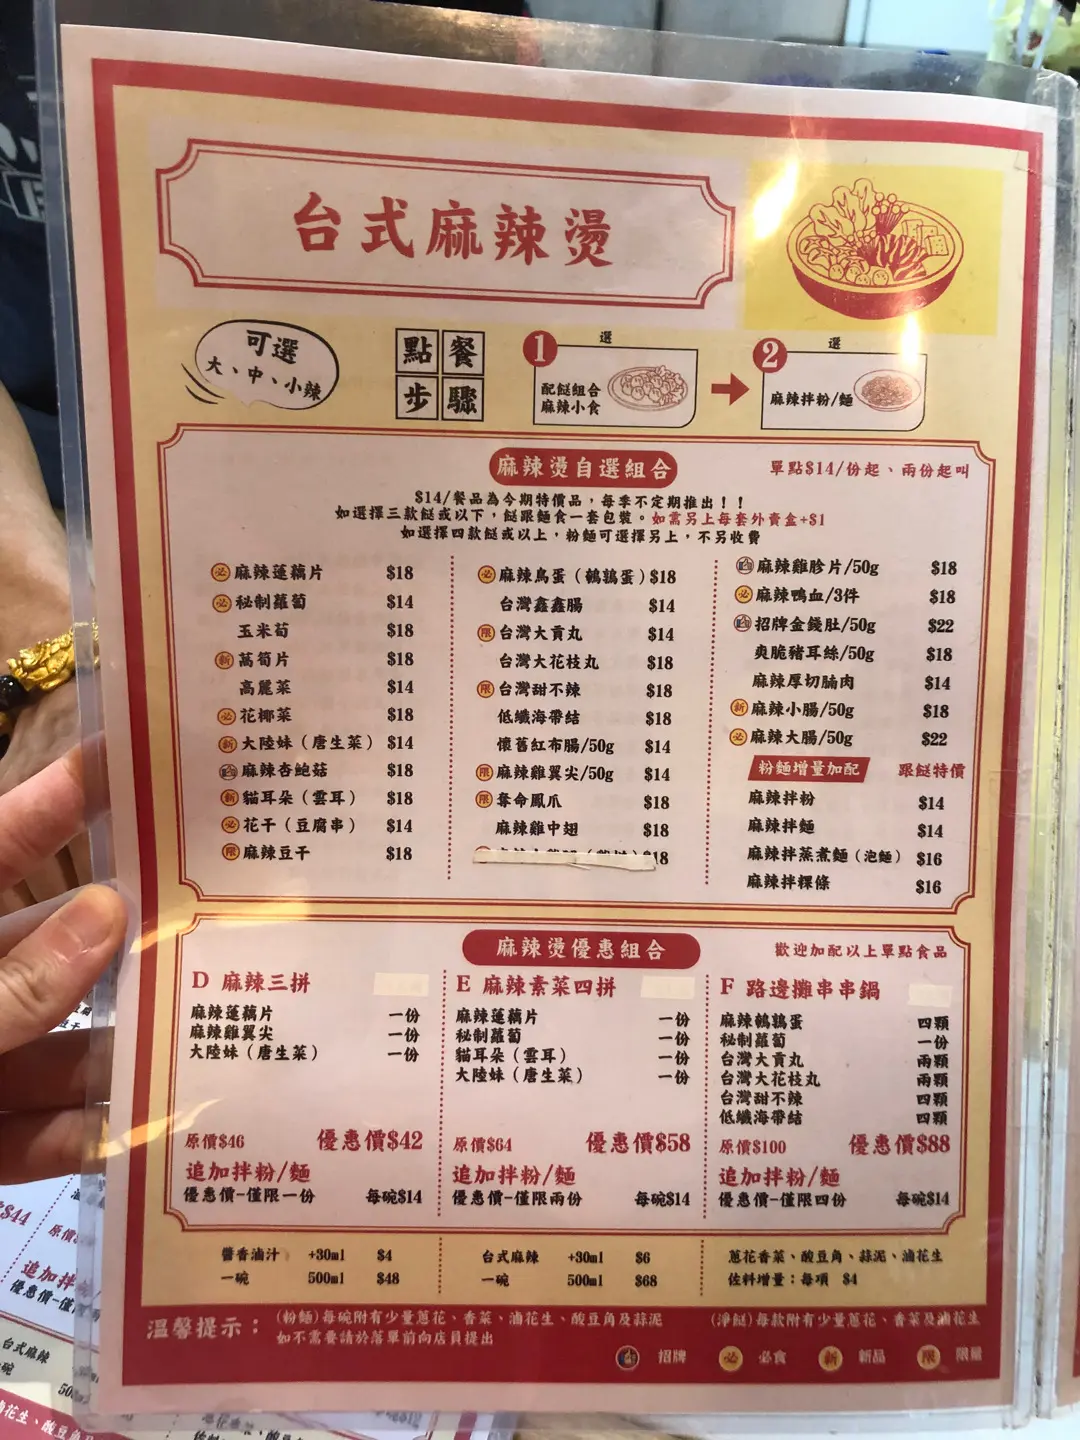 台式麻辣燙
可選
大、中、小辣
點餐
步驟
1
選
配餸組合
麻辣小食
2
選
麻辣拌粉/麵
麻辣燙自選組合
單點$14/份起、兩份起叫
$14/餐品為今期特價品，每季不定期推出！！
如選擇三款餸或以下，餸跟麵食一套包裝。如需另上每套外賣盒+$1
如選擇四款餸或以上，粉麵可選擇另上，不另收費
必 麻辣蓮藕片 $18
必 秘制蘿蔔 $14
玉米荀 $18
新 萵筍片 $18
高麗菜 $14
必 花椰菜 $18
新 大陸妹（唐生菜） $14
麻辣杏鮑菇 $18
新 貓耳朵（雲耳） $18
必 花干（豆腐串） $14
限 麻辣豆干 $18
必 麻辣鳥蛋（鵪鶉蛋）$18
台灣鑫鑫腸 $14
限 台灣大貢丸 $14
台灣大花枝丸 $18
限 台灣甜不辣 $18
低纖海帶結 $18
懷舊紅布腸/50g $14
限 麻辣雞翼尖/50g $14
限 奪命鳳爪 $18
麻辣雞中翅 $18
18
麻辣雞胗片/50g $18
必 麻辣鴨血/3件 $18
招牌金錢肚/50g $22
爽脆豬耳絲/50g $18
麻辣厚切腩肉 $14
新 麻辣小腸/50g $18
必 麻辣大腸/50g $22
粉麵增量加配 跟餸特價
麻辣拌粉 $14
麻辣拌麵 $14
麻辣拌蒸煮麵（泡麵） $16
麻辣拌粿條 $16
麻辣燙優惠組合
歡迎加配以上單點食品
D 麻辣三拼
麻辣蓮藕片 一份
麻辣雞翼尖 一份
大陸妹（唐生菜） 一份
原價$46 優惠價$42
追加拌粉/麵
優惠價-僅限一份 每碗$14
E 麻辣素菜四拼
麻辣蓮藕片 一份
秘制蘿蔔 一份
貓耳朵（雲耳） 一份
大陸妹（唐生菜） 一份
原價$64 優惠價$58
追加拌粉/麵
優惠價-僅限兩份 每碗$14
F 路邊攤串串鍋
麻辣鵪鶉蛋 四顆
秘制蘿蔔 一份
台灣大貢丸 兩顆
台灣大花枝丸 兩顆
台灣甜不辣 四顆
低纖海帶結 四顆
原價$100 優惠價$88
追加拌粉/麵
優惠價-僅限四份 每碗$14
醬香滷汁 +30ml $4
一碗 500ml $48
台式麻辣 +30ml $6
一碗 500ml $68
蔥花香菜、酸豆角、蒜泥、滷花生
佐料增量：每項 $4
溫馨提示：
(粉麵)每碗附有少量蔥花、香菜、滷花生、酸豆角及蒜泥
如不需要請於落單前向店員提出
(淨餸)每款附有少量蔥花、香菜及滷花生
招牌 必 必食 新 新品 限 限量
$44
原價
追加拌
優惠價-僅
台式麻辣